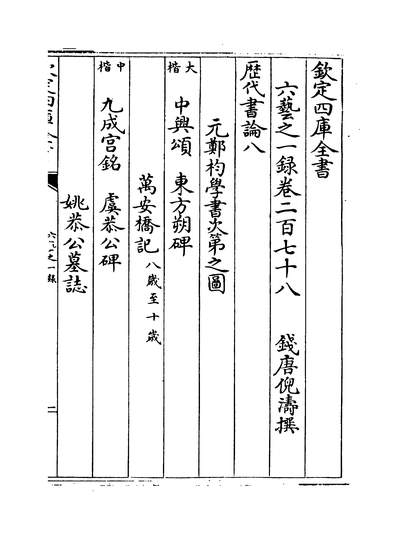 欽定四庫全書
六藝之一録卷二百七十八
錢唐倪濤撰
歴代書論八
元鄭杓學書次第之圖
大楷 中興頌 東方朔碑
萬安橋記 八歳至十歳
中楷 九成宫銘 虞恭公碑
姚恭公墓誌
六藝之一録
二